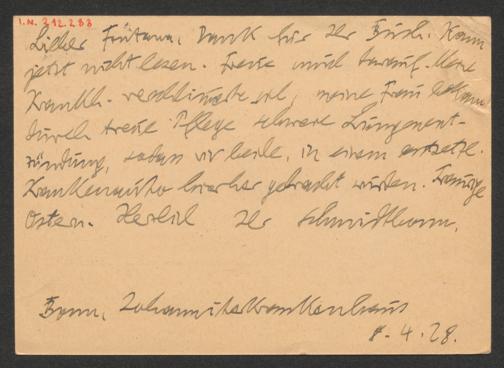 I.N. 312.283
Lieber Fontana, Dank für Ihr Buch. Kann
jetzt nicht lesen. Freue mich darauf. Meine
Krankh. verschlimmerte sich, meine Frau bekam
durch treue Pflege schwere Lungenent-
zündung, sodass wir beide, in einem entsetzl.
Krankenauto hierher gebracht wurden. Traurige
Ostern. Herzlich Ihr Schmidtbonn.
Bonn, Johanniterkrankenhaus
8.4.28.